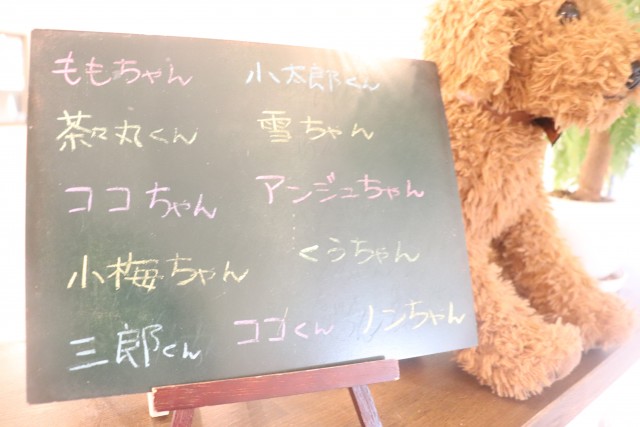 ももちゃん 小太郎くん
茶々丸くん 雪ちゃん
ココちゃん アンジュちゃん
小梅ちゃん くうちゃん
三郎くん ココくん ノンちゃん